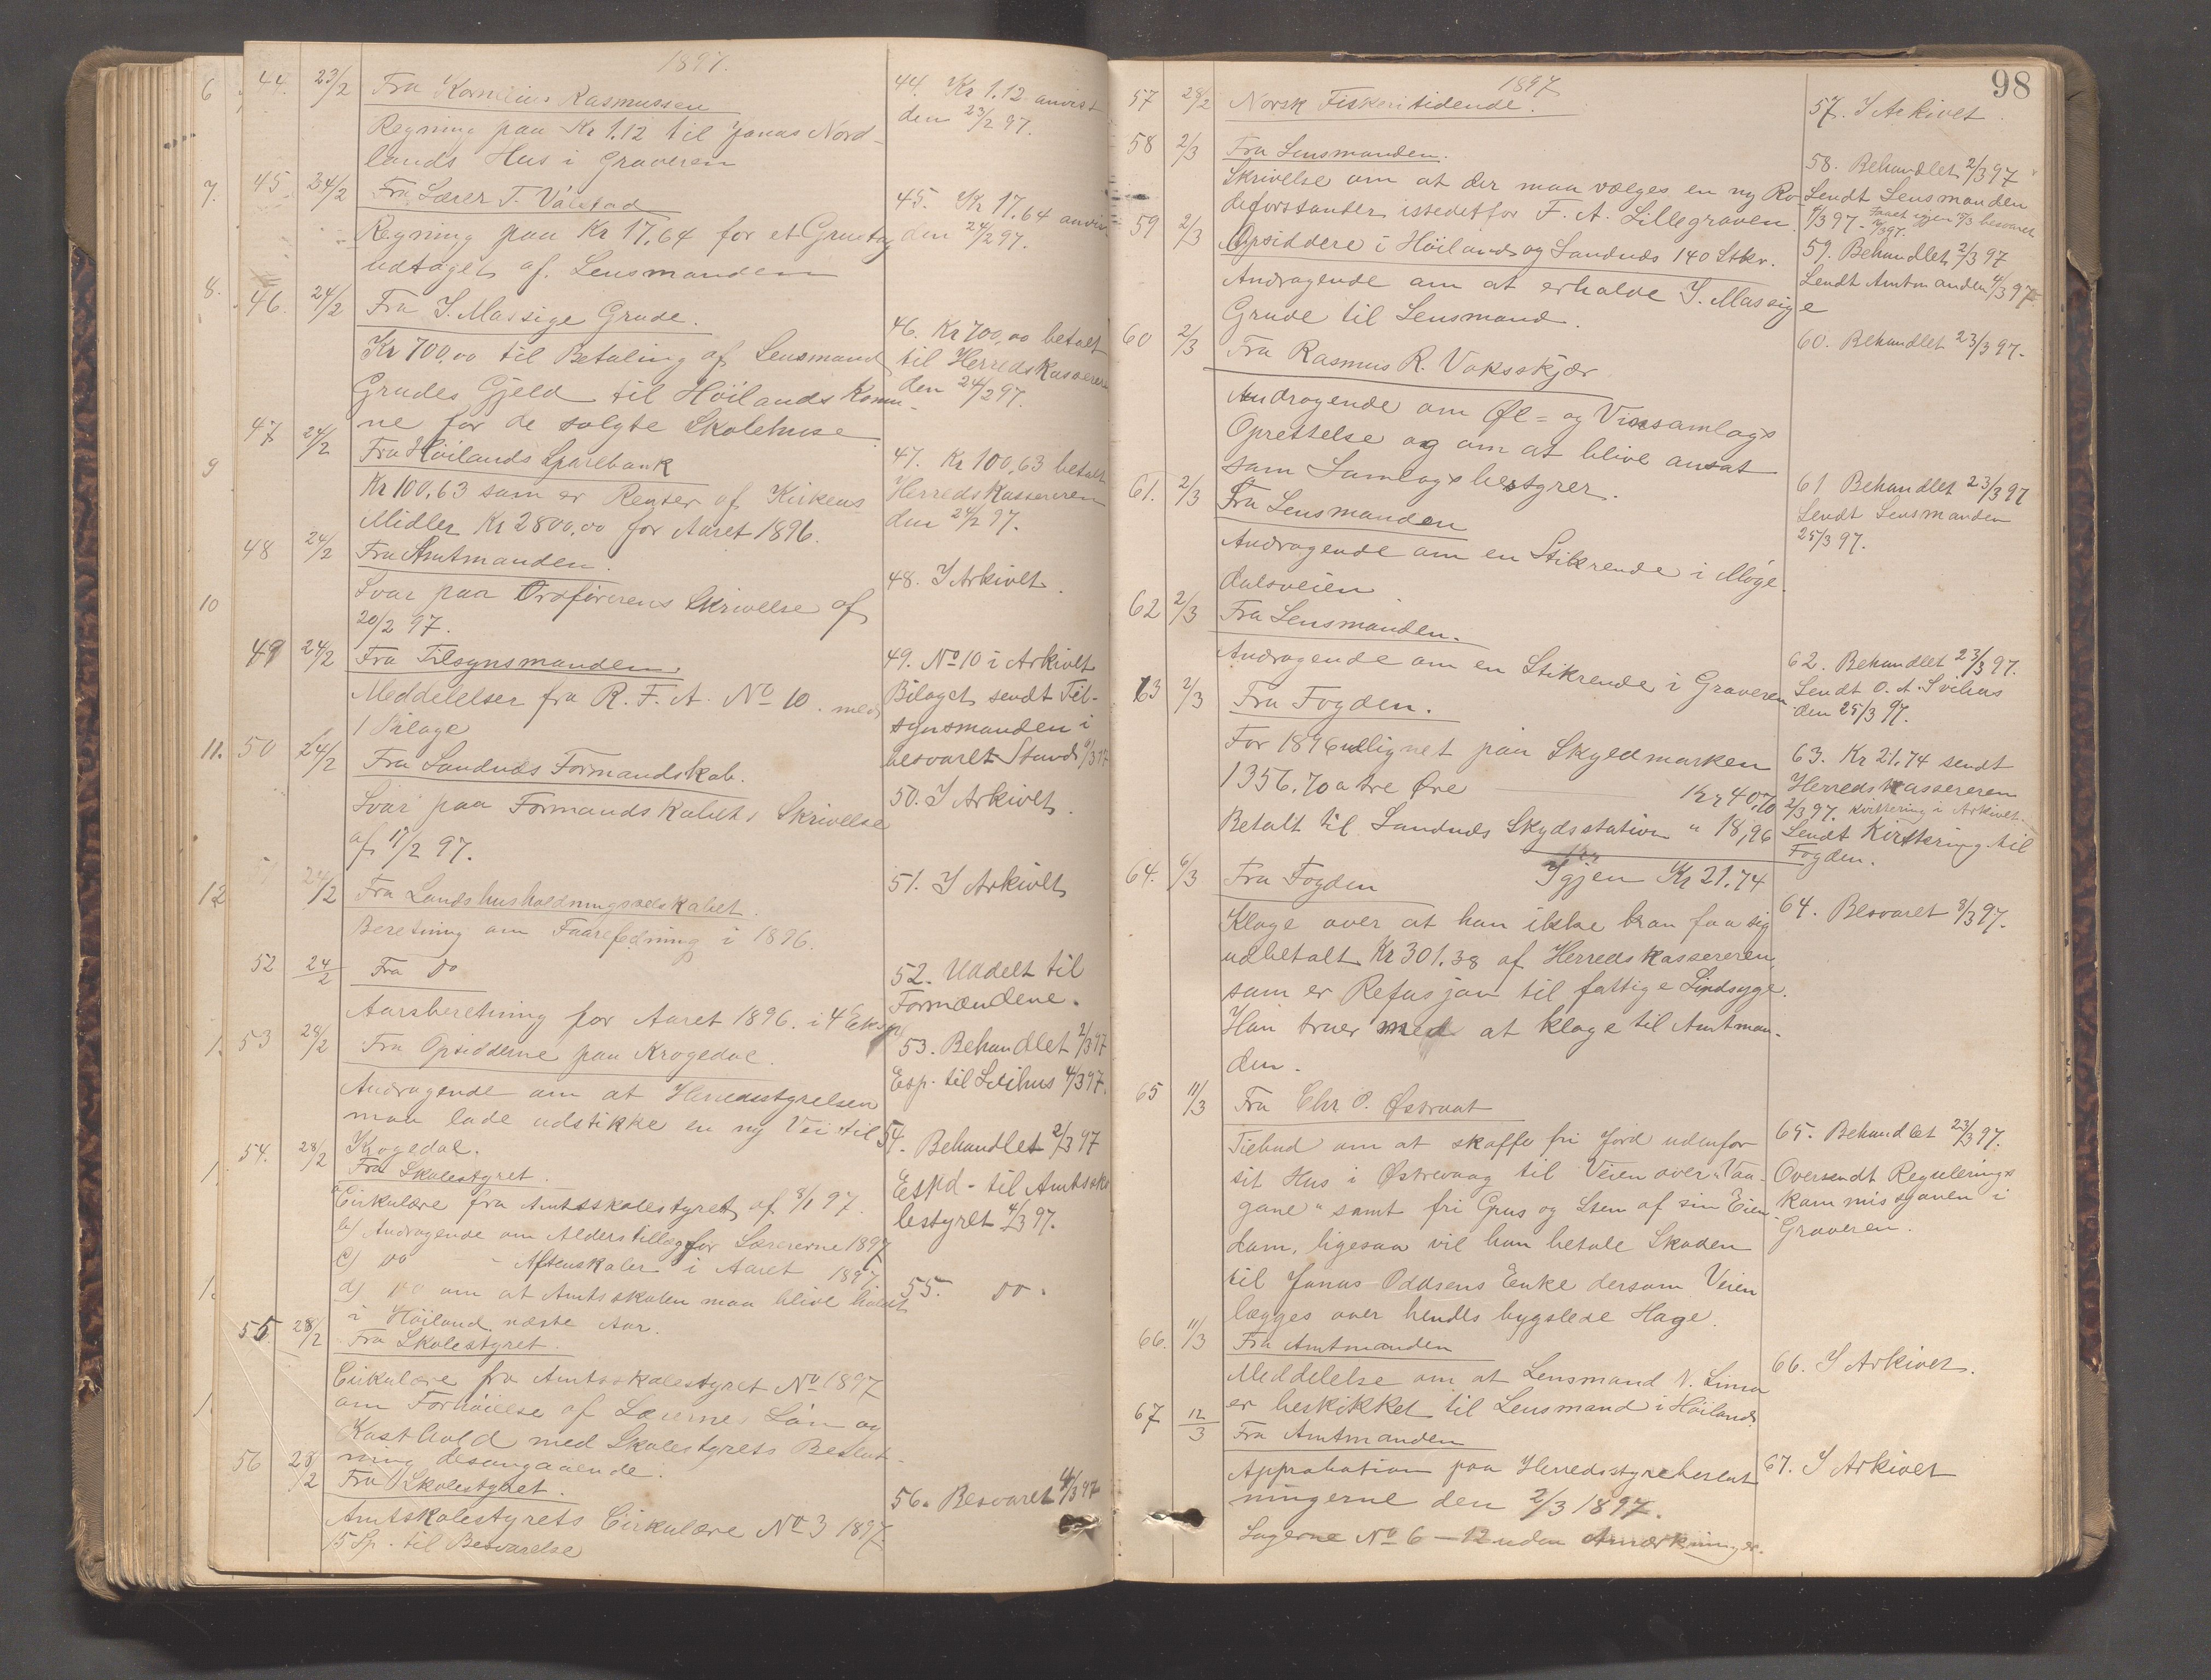 1897.
44. 23/2 Fra Kornelius Rasmussen
Regning paa Kr 1.12 til Jonas Nord-
lands Hus i Graveren
44. Kr 1.12 anvist
den 23/2 97.
45 24/2 Fra Lærer T. Válstad
Regning paa Kr 17,64 for et Grustag
udtaget af Lensmanden
45. Kr 17.64 anvist
den 24/2 97.
46. 24/2 Fra I. Massige Grude.
Kr 700,00 til Betaling af Lensmand
Grudes Gjeld til Höilands Kommu-
ne for de solgte Skolehuse.
46. Kr 700,00 betalt
til Herredskassereren
den 24/2 97.
47 24/2 Fra Höilands Sparebank
Kr 100,63 som er Renter af Kirkens
Midler Kr 2800,00 for Aaret 1896.
47. Kr 100,63 betalt
Herredskassereren
den 24/2 97.
48 24/2 Fra Amtmanden.
Svar paa Ordförerens Skrivelse af
20/2 97.
48. I Arkivet.
49 24/2 Fra Tilsynsmanden.
Meddelelser fra R. F. A. No 10. med
1 Bilage
49. No 10 i Arkivet
Bilaget sendt Til-
synsmanden i
besvaret Stand 9/3 97
11. 50 24/2 Fra Sandnæs Formandskab.
Svar paa Formandskabets Skrivelse
af 17/2 97.
50. I Arkivet.
12 51 24/2 Fra Landhusholdningsselskabet.
Beretning om Faarefedning i 1896.
51. I Arkivet
52 24/2 Fra Do
Aarsberetning for Aaret 1896. i 4 Eksp
52. Uddelt til
Formændene.
53 28/2 Fra Opsidderne paa Krogedal.
Andragende om at Herredsstyrelsen
maa lade udstikke en ny Vei til
Krogedal.
53. Behandlet 2/3 97
Esp. til Svihus 4/3 97.
54. 28/2 Fra Skolestyret.
a Cirkulære fra Amtsskolestyret af 8/1 97.
b) Andragende om Alderstillæg for Lærerne 1897
c) Do - Aftenskoler i Aaret 1897.
d) Do om at Amtsskolen maa blive holdt
i Höiland næste Aar.
54. Behandlet 2/3 97
Espd - til Amtssko
lestyret 4/3 97.
55 28/2 Fra Skolestyret.
Cirkulære fra Amtsskolestyret No 1897
om Forhöielse af Lærernes Lön og
Kosthold med Skolestyrets Beslut-
ning desangaaende.
55. Do.
56 28/2 Fra Skolestyret.
Amtskolestyrets Cirkulære No 3 1897.
5 Sp. til Besvarelse
56. Besvaret 4/3 97
98
1897
57 28/2 Norsk Fiskeritidende.
57. I Arkivet.
58 2/3 Fra Lensmanden.
Skrivelse om at der maa vælges en ny Ro-
deforstander istedetfor F. A. Lillegraven.
58. Behandlet 2/3 97
Sendt Lensmanden
59 2/3 Opsiddere i Höiland og Sandnæs 140 Stkr.
Andragende om at erholde I. Massige
Grude til Lensmand.
59. Behandlet 2/3 97
Sendt Amtmanden 4/3 97.
60 2/3 Fra Rasmus R. Voksskjær
Andragende om Øl= og Vinsamlags
Oprettelse og om at blive ansat
som Samlagsbestyrer.
60. Behandlet 23/3 97.
61. 2/3 Fra Lensmanden
Andragende om en Stikrende i Möge-
dalsveien
61 Behandlet 23/3 97
Sendt Lensmanden
25/3 97.
62 2/3 Fra Lensmanden.
Andragende om en Stikrende i Graveren.
62. Behandlet 23/3 97.
Sendt O. A. Svihus
den 25/3 97.
63 2/3 Fra Fogden.
For 1896 udlignet paa Skyldmarken
1356.70 a tre Øre Kr 40,70
Betalt til Sandnæs Skydsstation " 18,96
Igjen Kr 21.74
63. Kr 21.74 sendt
Herredskassereren
2/3 97. Kvittering i Arkivet.
Sendt Kvittering til
Fogden.
64. 6/3 Fra Fogden
Klage over at han ikke kan faa sig
udbetalt Kr 301.38 af Herredskassereren,
som er Refusjon til fattige Sindsyge.
Han truer med at klage til Amtman-
den.
64. Besvaret 8/3 97.
65 11/3 Fra Chr. P. Østraat
Tilbud om at skaffe fri Jord udenfor
sit Hus i Østrevaag til Veien over "Vaa-
gane" samt fri Grus og Sten af sin Eien-
dom, ligesaa vil han betale Skaden
til Jonas Oddsens Enke dersom Veien
lægges over hendes bygslede Hage.
65. Behandlet 23/3 97.
Oversendt Regulerings
kommissjonen i
Graveren.
66. 11/3 Fra Amtmanden
Meddelelse om at Lensmand N. Lima
er beskikket til Lensmand i Höiland.
66. I Arkivet.
67 12/3 Fra Amtmanden
Approbation paa Herredsstyrebeslut
ningerne den 2/3 1897.
Sagerne No 6 - 12 uden Anmærkninger.
67. I Arkivet